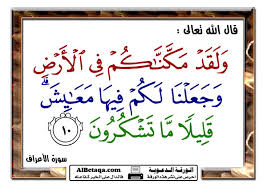 قال الله تعالى :
وَلَقَدْ مَكَّنَّـٰكُمْ فِى ٱلْأَرْضِ
وَجَعَلْنَا لَكُمْ فِيهَا مَعَـٰيِشَ ۗ
قَلِيلًا مَّا تَشْكُرُونَ ١٠
سورة الأعراف
الورقة الدعوية
AlBetaqa.com